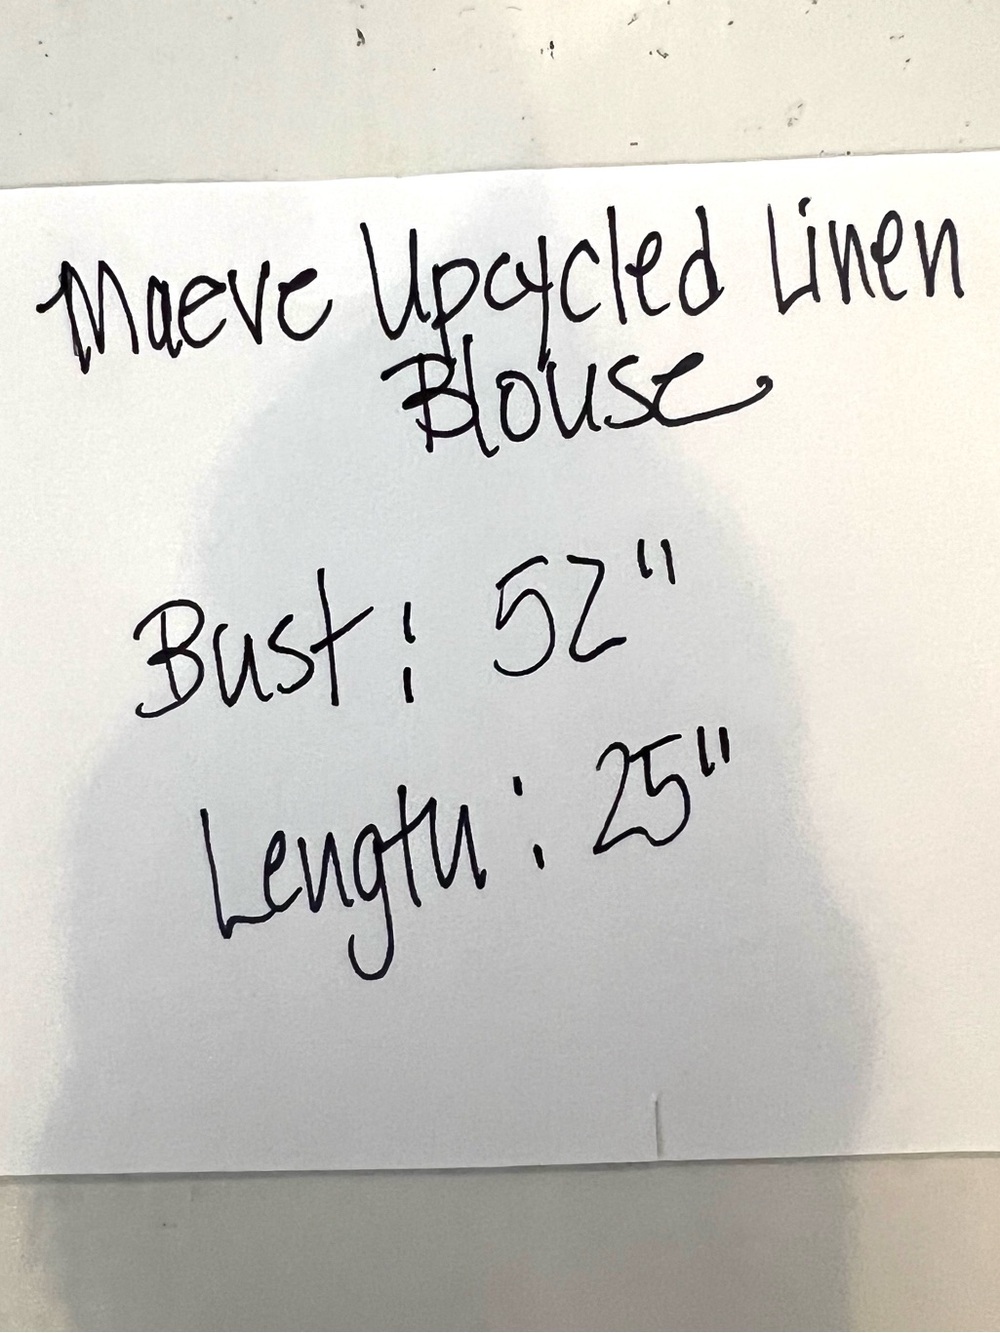 Maeve Upcycled Linen
Blouse
Bust: 52"
Length: 25"